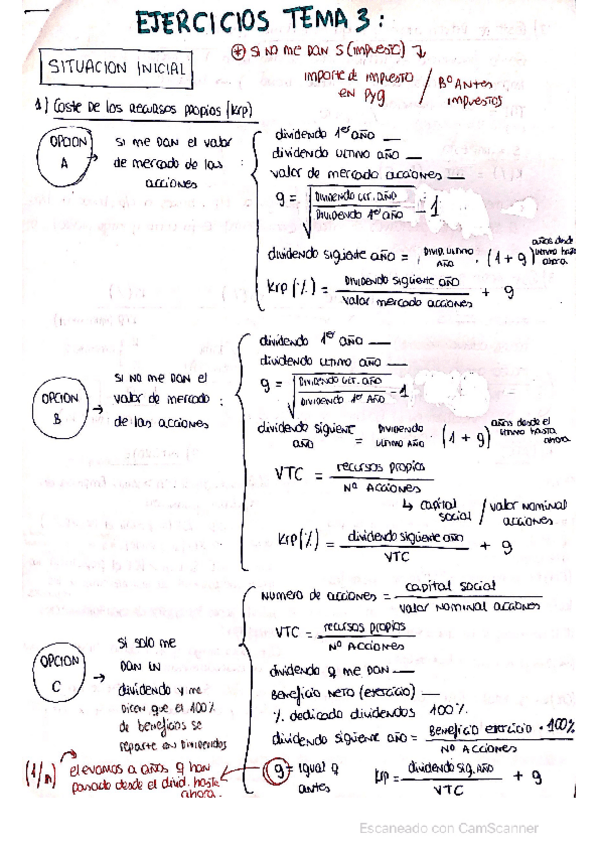 EJERCICIOS TEMA 3:
⊕ SI NO ME DAN S (impuesto) ↴
SITUACION INICIAL
importe de impuesto EN Pyg / Bº Antes impuestos
1) Coste De los recursos propios (krp)
OPCION A → SI me DAN el valor de mercado de las acciones :
dividendo 1er año __
dividendo ULTIMO AÑO __
valor de mercado acciones __
g = √ DIVIDENDO ULT. AÑO / DIVIDENDO 1er AÑO - 1
dividendo siguiente año = DIVID. ULTIMO AÑO · (1 + g) años desde ULTIMO hasta ahora
krp (%) = DIVIDENDO SIGUIENTE AÑO / valor mercado acciones + g
OPCION B → SI NO me DAN el valor de mercado de las acciones :
dividendo 1er AÑO __
dividendo ULTIMO AÑO __
g = √ DIVIDENDO ULT. AÑO / DIVIDENDO 1er AÑO - 1
dividendo siguiente año = DIVIDENDO ULTIMO AÑO · (1 + g) años desde el ULTIMO HASTA ahora
VTC = recursos propios / Nº Acciones
↳ capital social / valor NOMINAL acciones
krp (%) = dividendo siguiente año / VTC + g
OPCION C → SI solo me DAN UN dividendo y me DICEN que el 100% de beneficios se reparte en DIVIDENDOS
NUMERO de acciones = capital social / valor NOMINAL acciones
VTC = recursos propios / Nº Acciones
dividendo q me DAN __
BENEFICIO NETO (ejercicio) __
% dedicado dividendos 100%
dividendo siguiente año = Beneficio ejercicio · 100% / Nº Acciones
(1/n) elevamos a años q han pasado desde el divid. hasta ahora.
g = igual q antes
krp = dividendo sig. AÑO / VTC + g
Escaneado con CamScanner